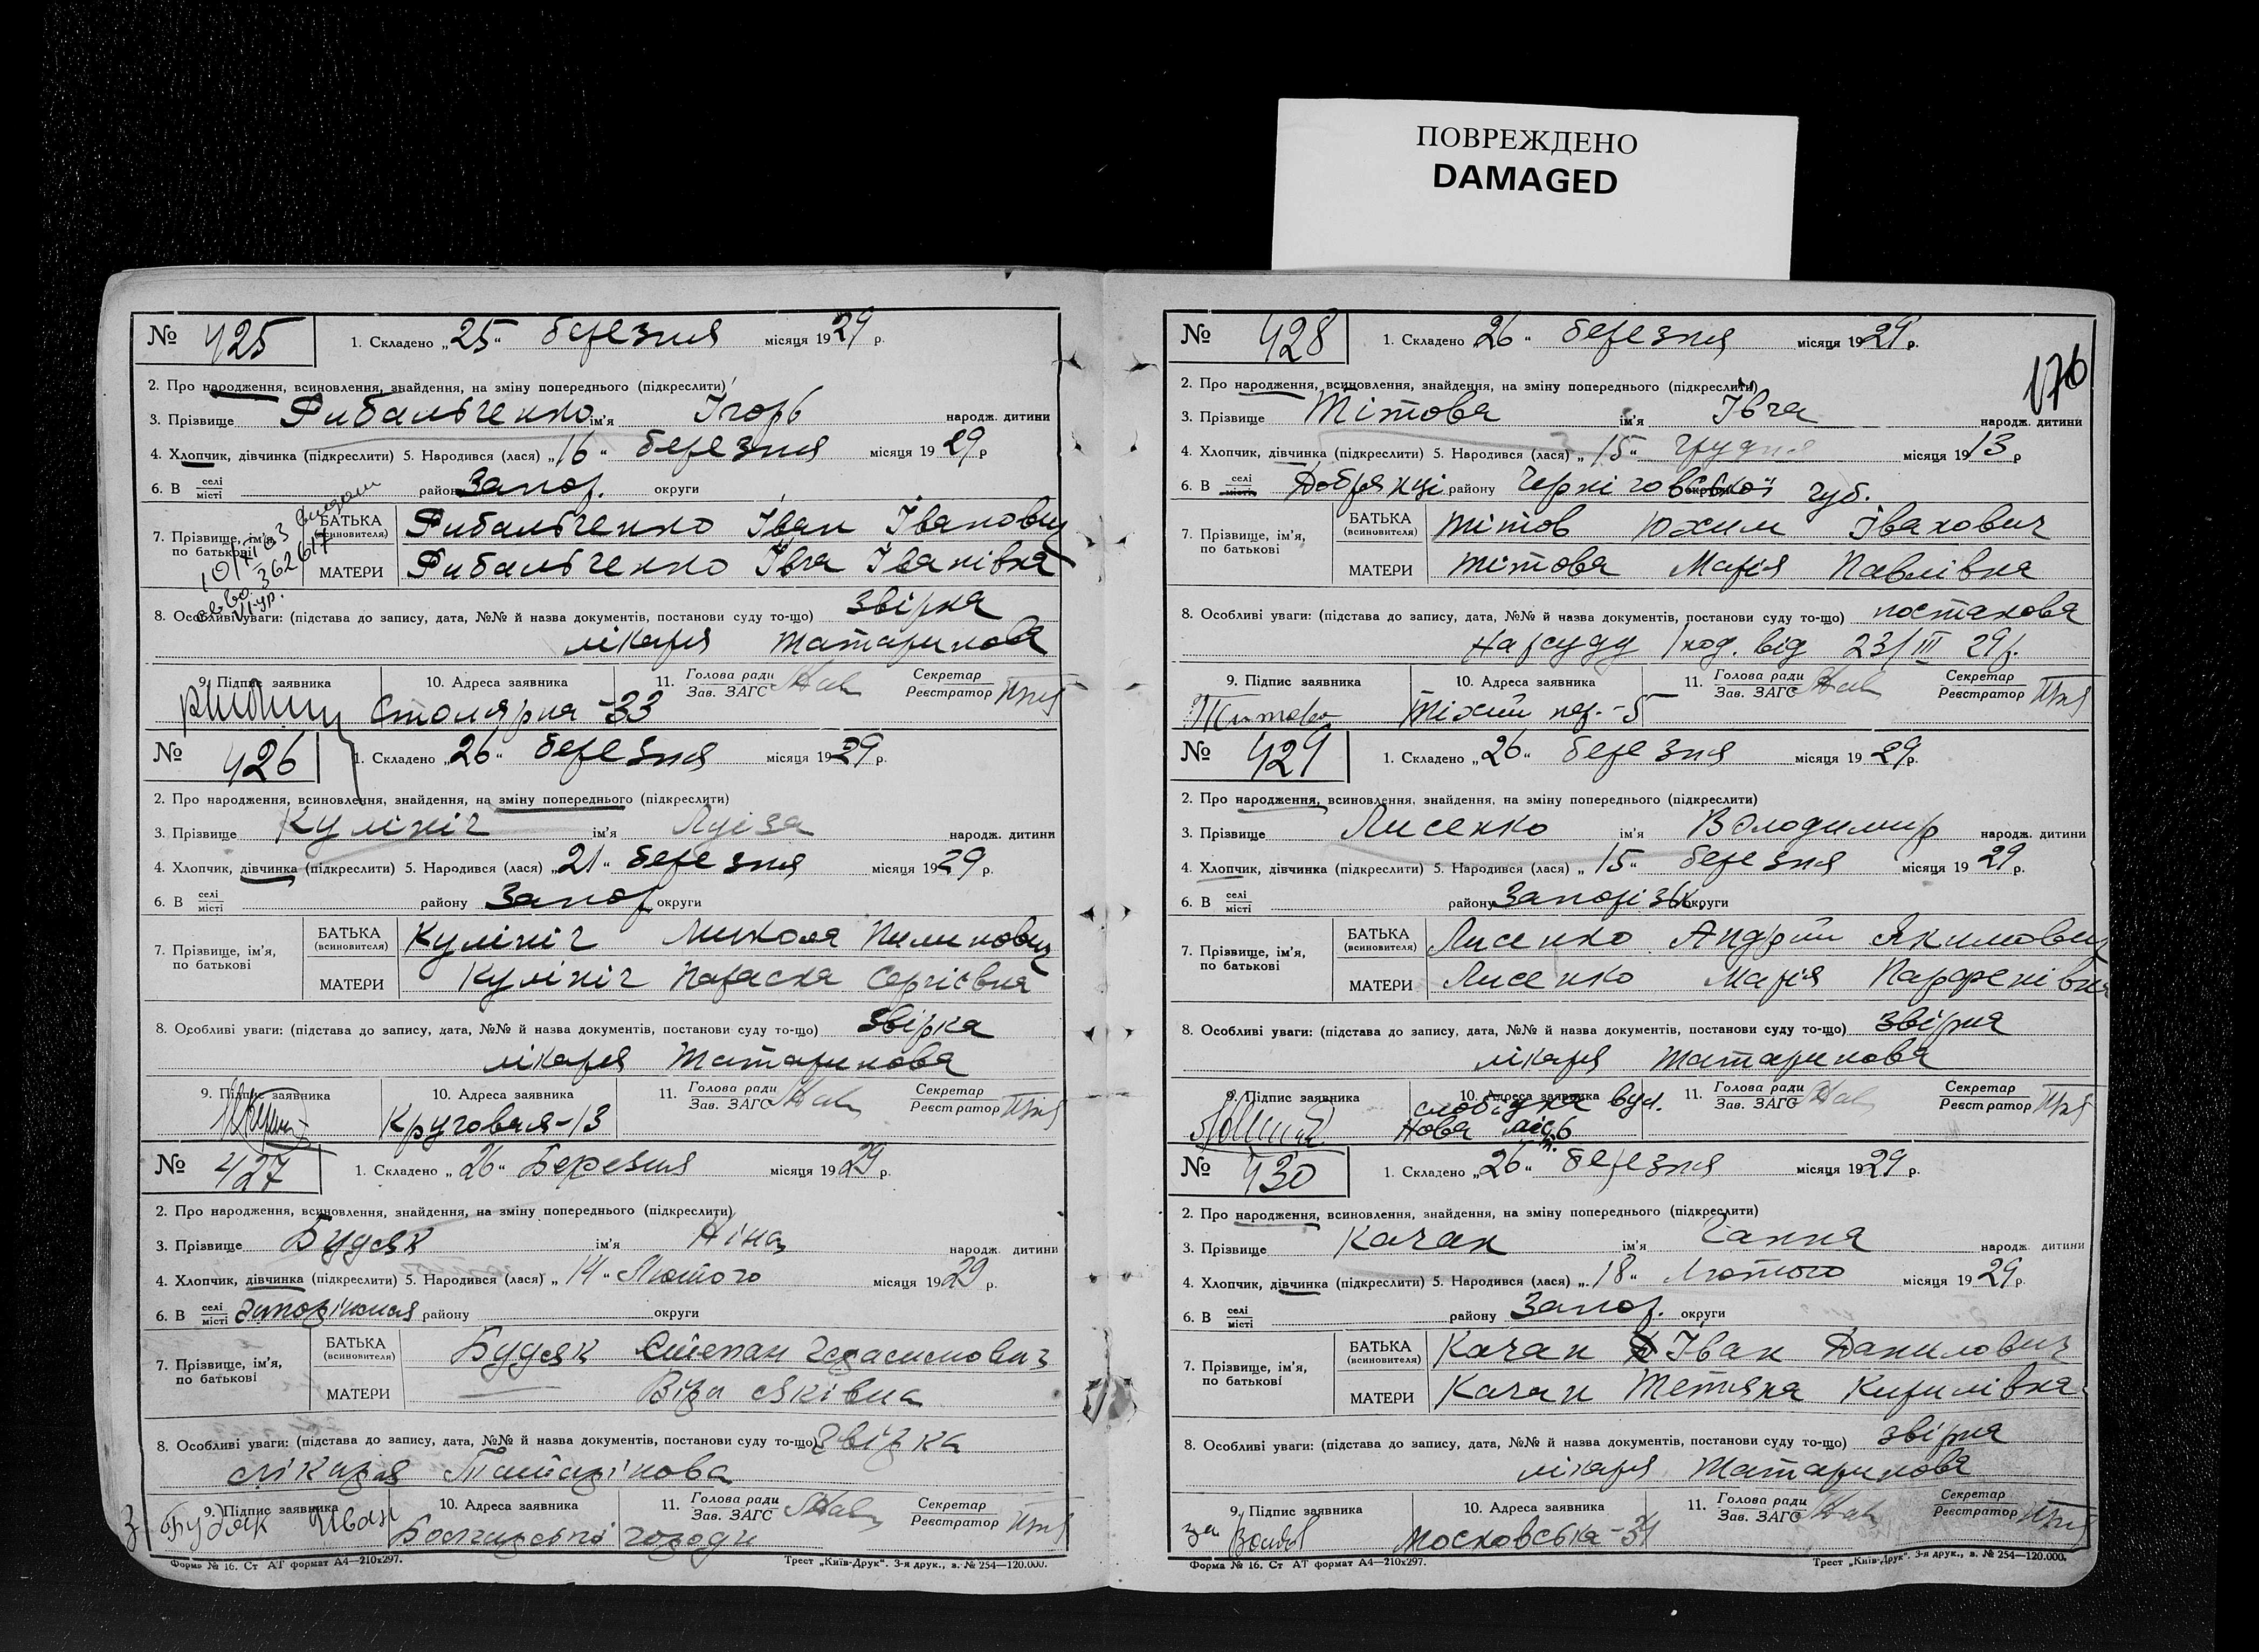 ПОВРЕЖДЕНО
DAMAGED
№ 425 1. Складено „25“ березня місяця 1929 р.
2. Про народження, всиновлення, знайдення, на зміну попереднього (підкреслити)
3. Прізвище Рибальченко ім'я Ігорь народж. дитини
4. Хлопчик, дівчинка (підкреслити) 5. Народився (лася) „16“ березня місяця 1929 р
6. В селі місті району Запор. округи
7. Прізвище, ім'я, по батькові БАТЬКА (всиновителя) Рибальченко Іван Іванович
МАТЕРИ Рибальченко Івга Іванівна
10/XI 63
362617
8. Особливі уваги: (підстава до запису, дата, №№ й назва документів, постанови суду то-що) звірка
лікаря Татаринова
9. Підпис заявника 10. Адреса заявника 11. Голова ради Зав. ЗАГС Секретар Реєстратор
Столярна-33
№ 426 1. Складено „26“ березня місяця 1929 р.
2. Про народження, всиновлення, знайдення, на зміну попереднього (підкреслити)
3. Прізвище Кулініч ім'я Луіза народж. дитини
4. Хлопчик, дівчинка (підкреслити) 5. Народився (лася) „21“ березня місяця 1929 р.
6. В селі місті району Запор. округи
7. Прізвище, ім'я, по батькові БАТЬКА (всиновителя) Кулініч Микола Пилипович
МАТЕРИ Кулініч Параска Сергієвна
8. Особливі уваги: (підстава до запису, дата, №№ й назва документів, постанови суду то-що) звірка
лікаря Татаринова
9. Підпис заявника 10. Адреса заявника 11. Голова ради Зав. ЗАГС Секретар Реєстратор
Круговая-13
№ 427 1. Складено „26“ Березня місяця 1929 р.
2. Про народження, всиновлення, знайдення, на зміну попереднього (підкреслити)
3. Прізвище Будяк ім'я Ніна народж. дитини
4. Хлопчик, дівчинка (підкреслити) 5. Народився (лася) „14“ Лютого місяця 1929 р.
6. В селі місті району округи
7. Прізвище, ім'я, по батькові БАТЬКА (всиновителя) Будяк Степан Герасимович
МАТЕРИ — Віра Яківна
8. Особливі уваги: (підстава до запису, дата, №№ й назва документів, постанови суду то-що) Звірка
лікаря Татарінова
9. Підпис заявника 10. Адреса заявника 11. Голова ради Зав. ЗАГС Секретар Реєстратор
Будяк Иван Болгарські городи
Форма № 16. Ст АТ формат А4—210х297. Трест „Київ-Друк“. 3-я друк., в. № 254—120.000.
176
№ 428 1. Складено „26“ березня місяця 1929 р.
2. Про народження, всиновлення, знайдення, на зміну попереднього (підкреслити)
3. Прізвище Тітова ім'я Івга народж. дитини
4. Хлопчик, дівчинка (підкреслити) 5. Народився (лася) „15“ грудня місяця 1913 р
6. В селі місті Добрянці району Черніговської округи губ.
7. Прізвище, ім'я, по батькові БАТЬКА (всиновителя) Тітов Юхим Іванович
МАТЕРИ Тітова Марія Павлівна
8. Особливі уваги: (підстава до запису, дата, №№ й назва документів, постанови суду то-що) постанова
Нарсуду від 23/III 29р.
9. Підпис заявника 10. Адреса заявника 11. Голова ради Зав. ЗАГС Секретар Реєстратор
Тихий пер.-5
№ 429 1. Складено „26“ березня місяця 1929 р.
2. Про народження, всиновлення, знайдення, на зміну попереднього (підкреслити)
3. Прізвище Лисенко ім'я Володимир народж. дитини
4. Хлопчик, дівчинка (підкреслити) 5. Народився (лася) „15“ березня місяця 1929 р.
6. В селі місті району Запорізьк. округи
7. Прізвище, ім'я, по батькові БАТЬКА (всиновителя) Лисенко Андрій Якимович
МАТЕРИ Лисенко Марія Парфенівна
8. Особливі уваги: (підстава до запису, дата, №№ й назва документів, постанови суду то-що) звірка
лікаря Татаринова
9. Підпис заявника 10. Адреса заявника 11. Голова ради Зав. ЗАГС Секретар Реєстратор
слобідка вул.
Нова
№ 430 1. Складено „26“ березня місяця 1929 р.
2. Про народження, всиновлення, знайдення, на зміну попереднього (підкреслити)
3. Прізвище Качан ім'я Ганна народж. дитини
4. Хлопчик, дівчинка (підкреслити) 5. Народився (лася) „18“ лютого місяця 1929 р.
6. В селі місті району Запор. округи
7. Прізвище, ім'я, по батькові БАТЬКА (всиновителя) Качан Іван Данилович
МАТЕРИ Качан Тетяна Кирилівна
8. Особливі уваги: (підстава до запису, дата, №№ й назва документів, постанови суду то-що) звірка
лікаря Татаринова
9. Підпис заявника 10. Адреса заявника 11. Голова ради Зав. ЗАГС Секретар Реєстратор
за Московська-34
Форма № 16. Ст АТ формат А4—210х297. Трест „Київ-Друк“. 3-я друк., в. № 254—120.000.